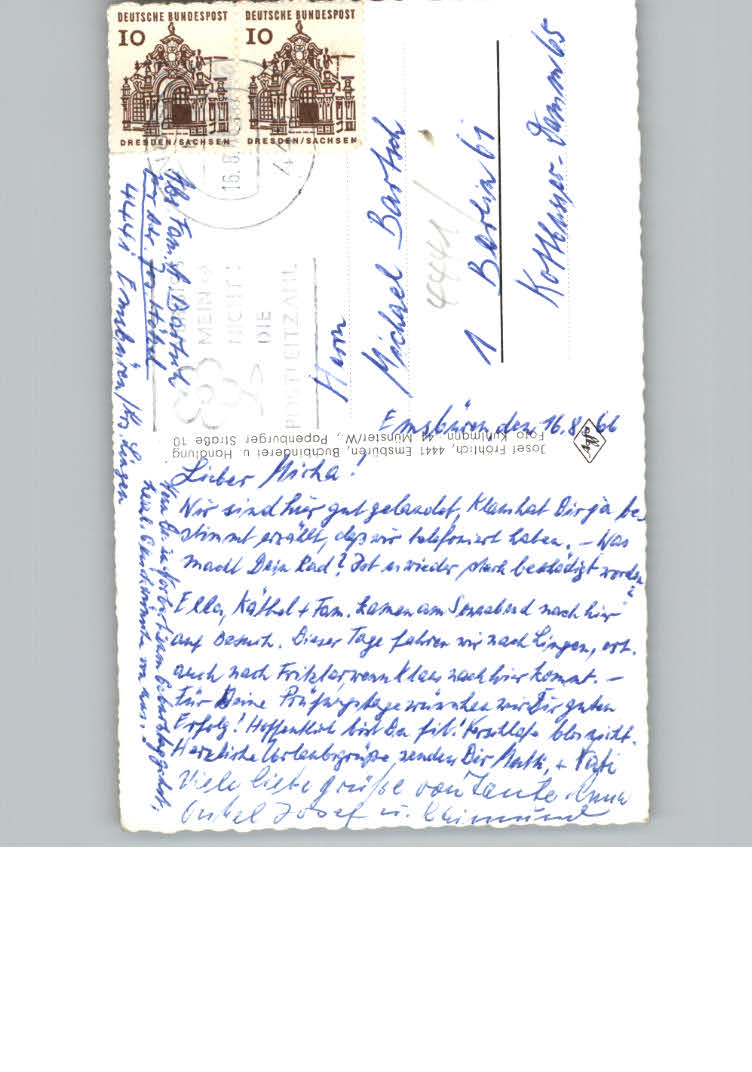 DEUTSCHE BUNDESPOST
10
DRESDEN/SACHSEN
DEUTSCHE BUNDESPOST
10
DRESDEN/SACHSEN
16.8.
444
MEIN
NICHT
DIE
POSTLEITZAHL
Abs. Fam. Bartsch
4441 Emsbüren/Kr. Lingen
Herrn
Michael Bartsch
4441
1 Berlin 61
Kottbusser-Damm 65
Josef Fröhlich, 4441 Emsbüren, Buchbinderei u. Handlung
Foto Kuhlmann, 44 Münster/W., Papenburger Straße 10
Emsbüren, den 16.8.66
Lieber Micha!
Wir sind hier gut gelandet, Klaus hat Dir ja be-
stimmt erzählt, daß wir telefoniert haben. – Was
macht Dein Rad? Ist es wieder stark beschädigt worden?
Ella, Käthel + Fam. kamen am Sonnabend nach hier
auf Besuch. Dieser Tage fahren wir nach Lingen, evt.
auch nach Fritzlar wenn Klaus nach hier kommt. –
Für Deine Prüfungstage wünschen wir Dir guten
Erfolg! Hoffentlich bist Du fit! Verschlafe blos nicht.
Herzliche Urlaubsgrüße senden Dir Mutti + Vati
Viele liebe grüße von Tante Anna
Onkel Josef u.